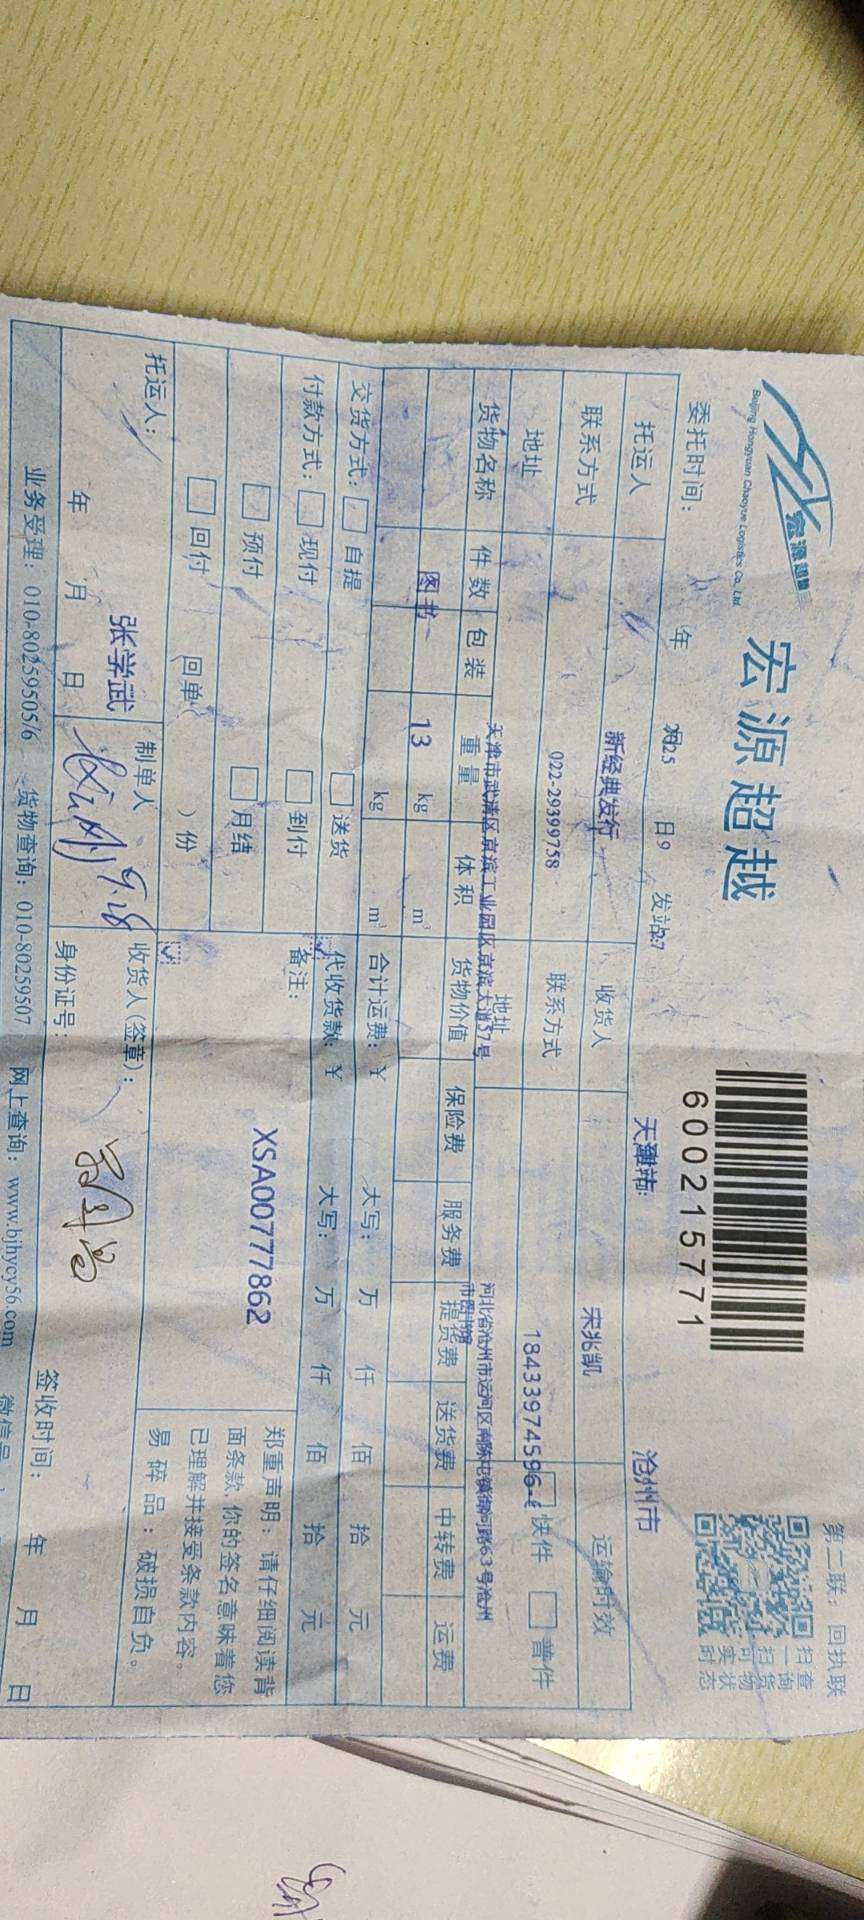 第二联：回执联
宏源超越
Beijing Hongyuan Chaoyue Logistics Co., Ltd
宏源超越
600215771
扫一扫可实时
查询货物状态
委托时间： 年 2025 日9 发站 27 天津 沧州市
托运人 新经典发行 收货人 宋兆凯 运输时效
联系方式 022-29399758 联系方式 18433974596-6 快件 普件
地址 天津市武清区京滨工业园区京滨大道57号 地址 河北省沧州市运河区南陈屯镇御河路63号沧州
市图书馆
货物名称 件数 包装 重量 体积 货物价值 保险费 服务费 提货费 送货费 中转费 运费
图书 13 kg m³
kg m³ 合计运费：¥ 大写： 万 仟 佰 拾 元
交货方式： 自提 送货 代收货款：¥ 大写： 万 仟 佰 拾 元
付款方式： 现付 到付 备注：
预付 月结
XSA00777862
回付 回单（ ）份
郑重声明：请仔细阅读背
面条款 你的签名意味着您
已理解并接受条款内容。
易碎品：破损自负。
托运人： 张学武 制单人 9.28 收货人（签章）：
年 月 日 身份证号： 签收时间： 年 月 日
业务受理：010-80259505/6 货物查询：010-80259507 网上查询：www.bjhycy56.com